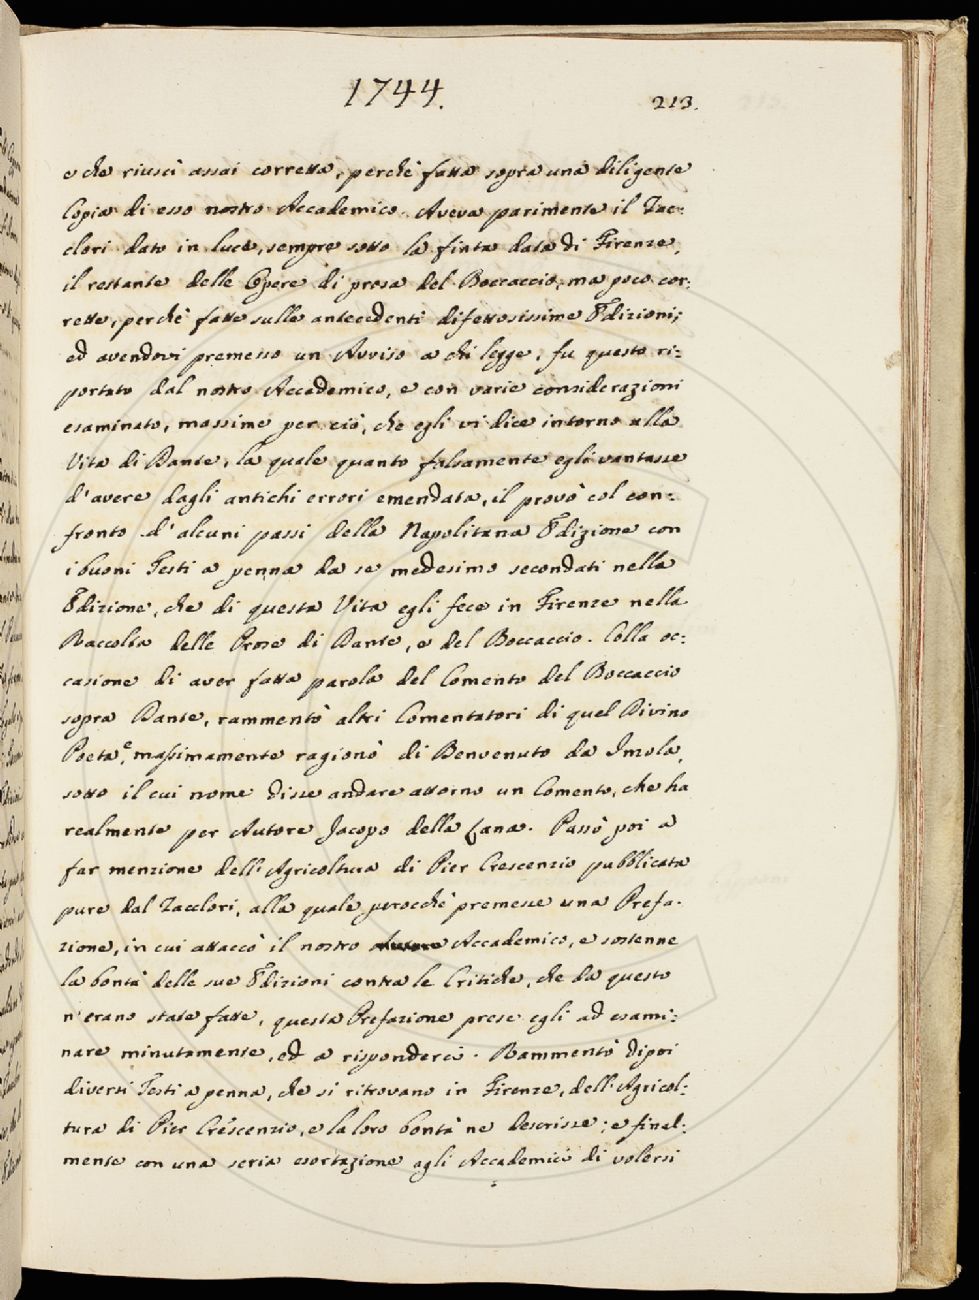 1744.
213.
e che riuscì assai corretta, perchè fatta sopra una diligente
Copia di esso nostro Accademico. Aveva parimente il Zac:
clori dato in luce, sempre sotto la finta data di Firenze,
il restante delle Opere di prosa del Boccaccio, ma poco cor:
rette, perchè fatte sulle antecedenti difettosissime Edizioni;
ed avendovi premesso un Avviso a chi legge, fu questo ri:
portato dal nostro Accademico, e con varie considerazioni
esaminato, massime per ciò, che egli vi dice intorno alla
Vita di Dante, la quale quanto falsamente egli vantasse
d'avere dagli antichi errori emendata, il provò col con:
fronto d'alcuni passi della Napolitana Edizione con
i buoni Testi a penna da se medesimo secondati nella
Edizione, che di questa Vita egli fece in Firenze nella
Raccolta delle Prose di Dante, e del Boccaccio. Colla oc:
casione di aver fatta parola del Comento del Boccaccio
sopra Dante, rammentò altri Comentatori di quel Divino
Poeta, e massimamente ragionò di Benvenuto da Imola,
sotto il cui nome disse andare attorno un Comento, che ha
realmente per Autore Jacopo della Lana. Passò poi a
far menzione dell'Agricoltura di Pier Crescenzio pubblicata
pure dal Zacclori, alla quale perocchè premesse una Prefa-
zione, in cui attaccò il nostro Accademico, e sostenne
la bontà delle sue Edizioni contra le Critiche, che da questo
n'erano state fatte, questa Prefazione prese egli ad esami:
nare minutamente, ed a risponderci. Rammentò dipoi
diversi Testi a penna, che si ritrovano in Firenze, dell'Agricol:
tura di Pier Crescenzio, e la loro bontà ne descrisse; e final:
mente con una seria esortazione agli Accademici di volersi